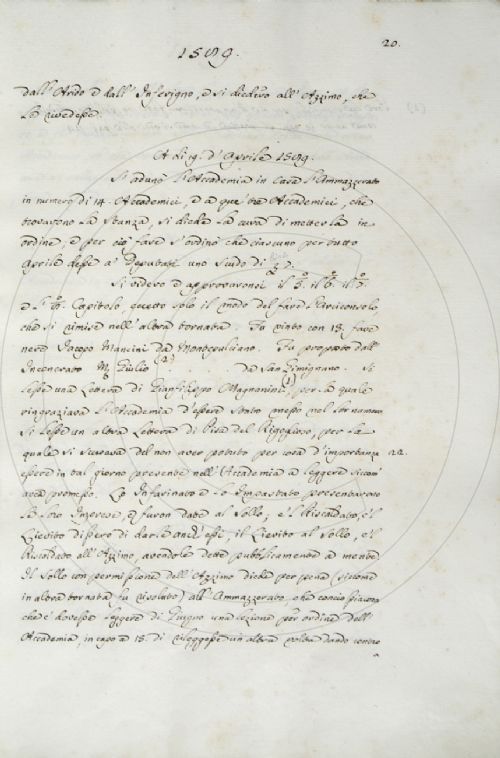 20.
1589.
dall' Arido e dall' Inferigno, e si diedero all' Azzimo, che
le rivedesse.
A di 19. d' Aprile 1589.
Si adunò l'Accademia in Casa l'Ammazzerato
in numero di 14. Accademici, e a que' tre Accademici, che
trovarono la Stanza, si diede la cura di metterla in
ordine, e per ciò fare s' ordinò che ciascuno per tutto
Aprile desse a' Deputati uno Scudo di
Si videro e approvaronsi il 3.° il 6.° il
e l' Capitolo, eccetto solo il modo del fare l'Arciconsolo
che si rimise nell' altra tornata. Fu vinto con 13. fave
nere Jacopo Mancini da Montepulciano. Fu proposto dall'
Incerconito M. Giulio (2) . . . . . da San Gimignano. Si
lesse una Lettera di Gianfilippo Magnanini (1), per la quale
ringraziava l'Accademia d'essere stato messo nel
Si lesse un altra Lettera di Pisa del Rigoglioso, per la
quale si scusava del non aver potuto per cosa d'importanza 22.
essere in tal giorno presente nell' Accademia a leggere siccom'
avea promesso. Lo Infarinato e lo Impastato presentarono
le loro Imprese, e furon date al Sollo, e 'l Riscaldato, e 'l
Lievito dissero di darle anch' essi, il Lievito al Sollo, e 'l
Riscaldato all' Azzimo, avendole dette pubblicamente a mente
Il Sollo con permissione dell' Azzimo diede per pena (siccome
in altra tornata fu risoluto) all' Ammazzerato, che
che e' dovesse leggere di Giugno una lezione per ordine dell'
Accademia, in capo a 15. di rileggesse un altra volta dando contro
a